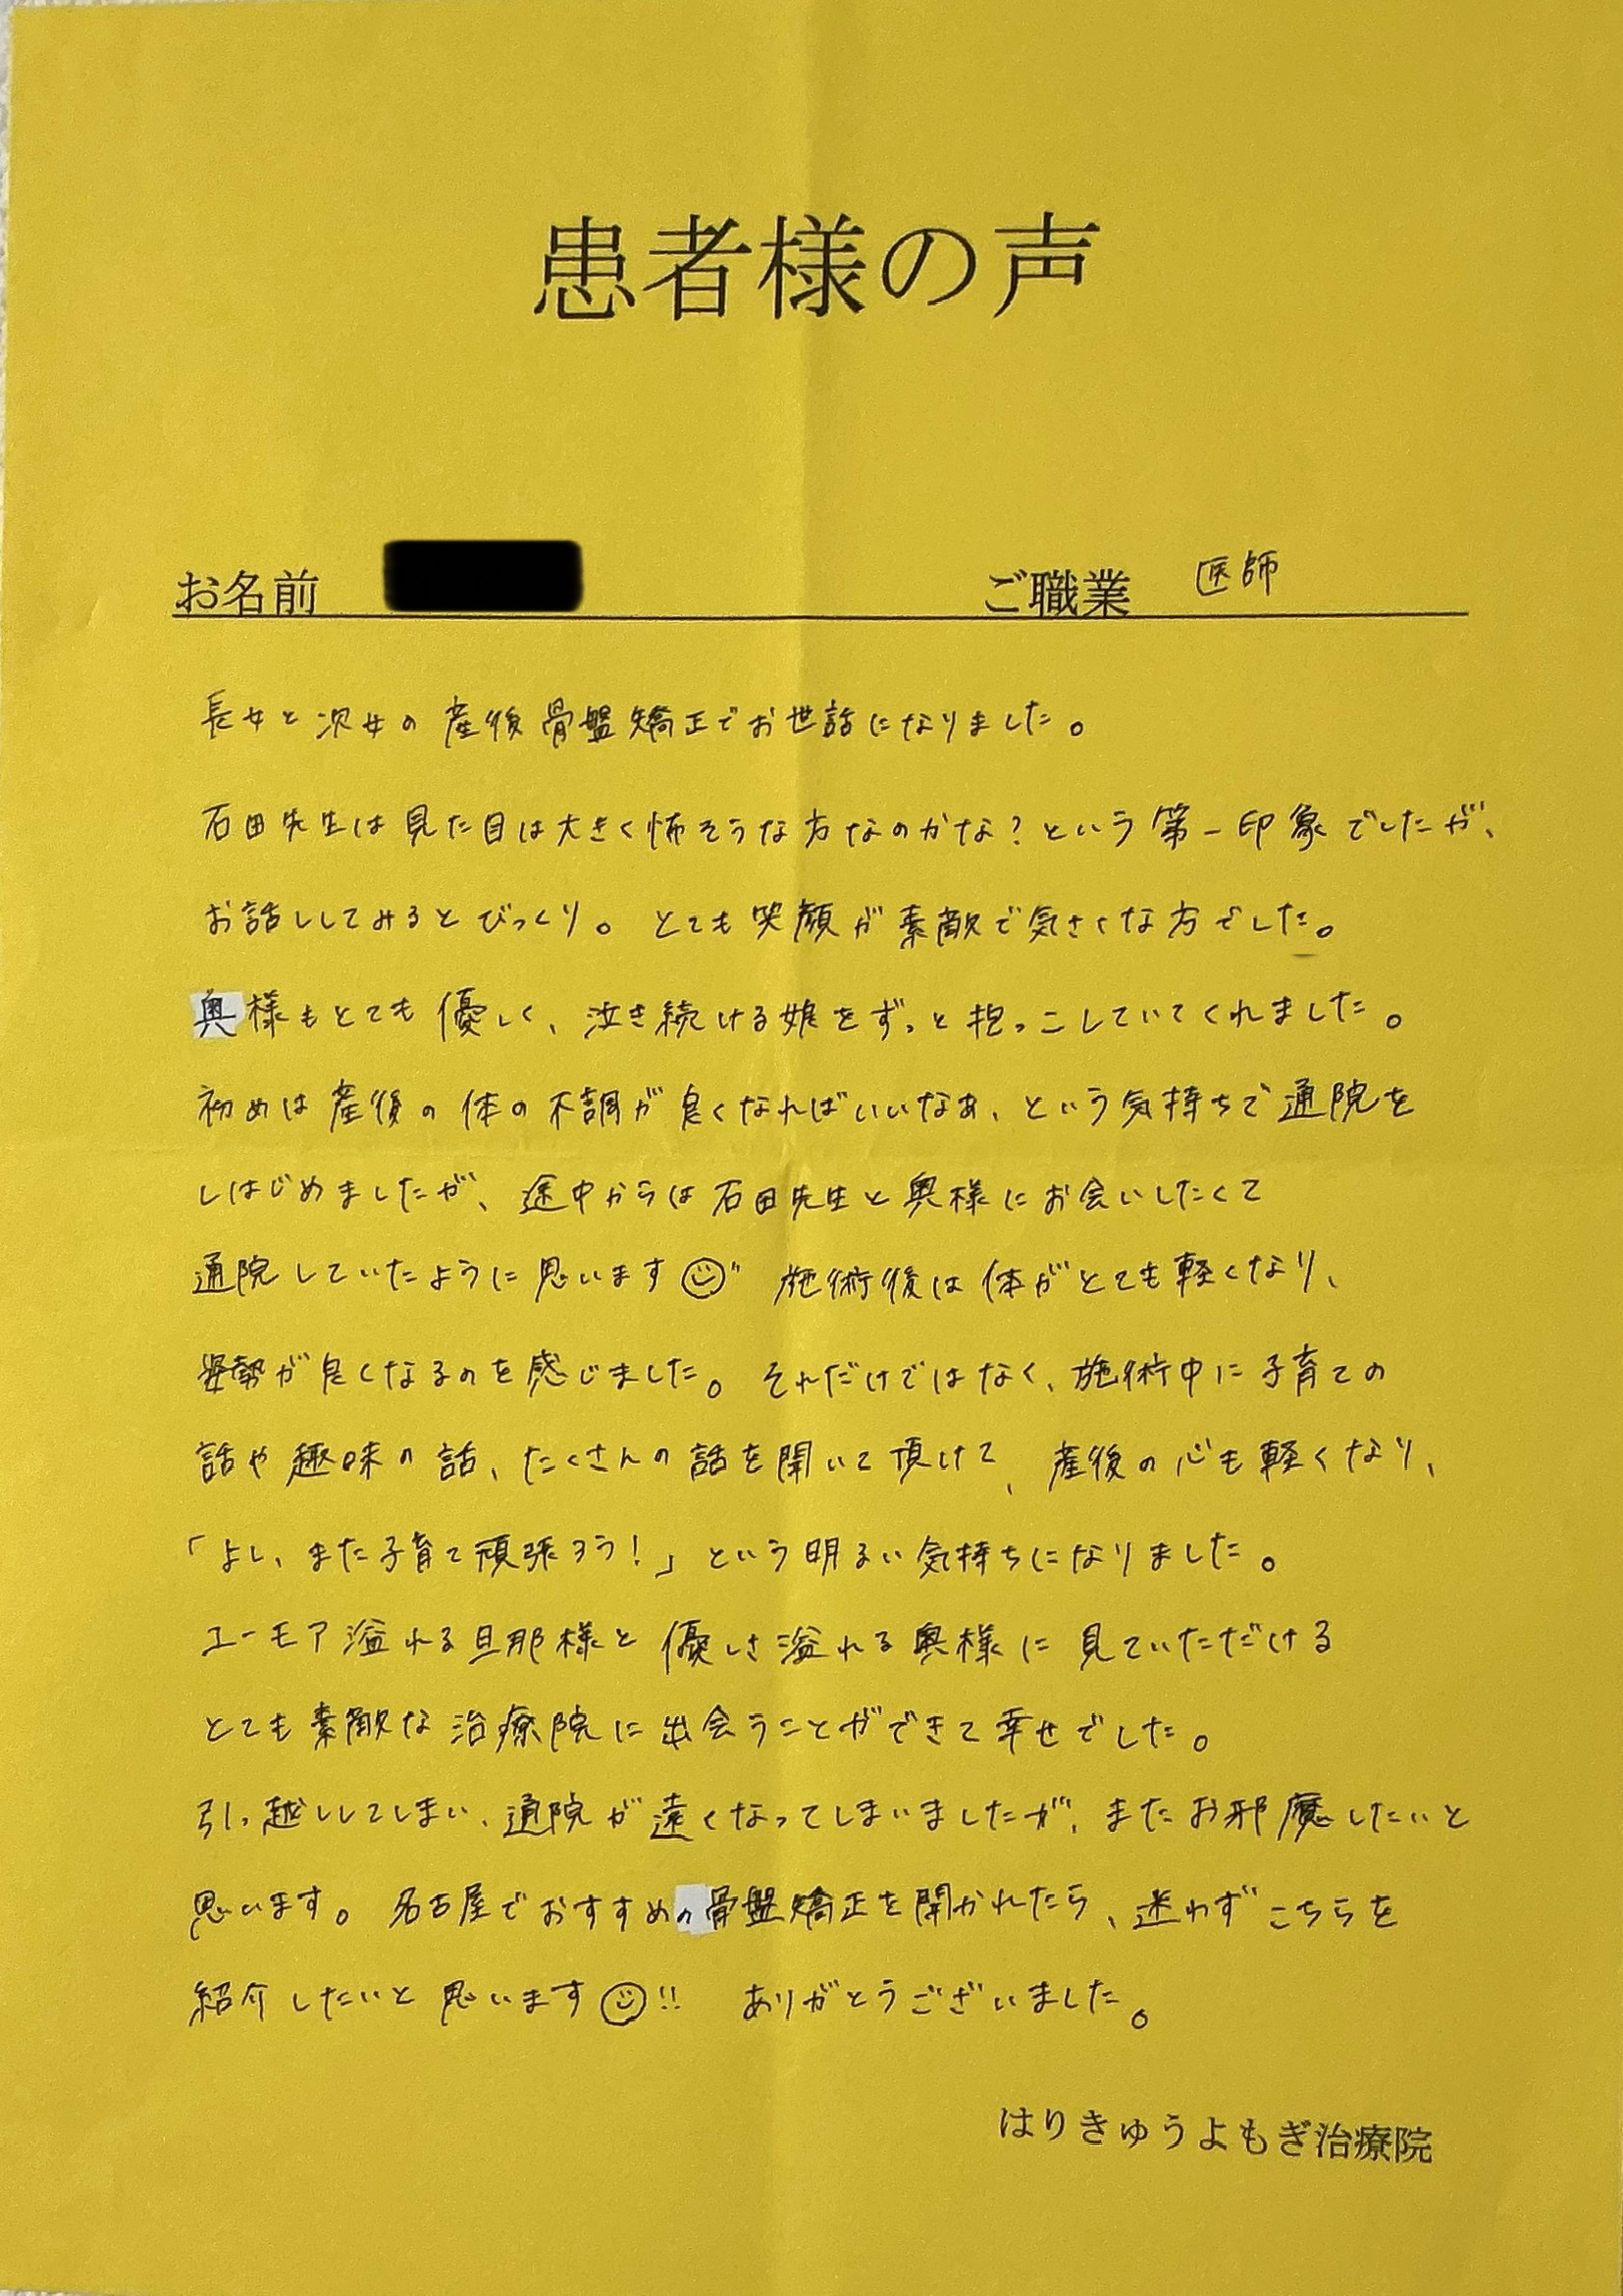 患者様の声
お名前 ご職業 医師
長女と次女の産後骨盤矯正でお世話になりました。
石田先生は見た目は大きく怖そうな方なのかな?という第一印象でしたが、
お話ししてみるとびっくり。とても笑顔が素敵で気さくな方でした。
奥様もとても優しく、泣き続ける娘をずっと抱っこしていてくれました。
初めは産後の体の不調が良くなればいいなあ、という気持ちで通院を
しはじめましたが、途中からは石田先生と奥様にお会いしたくて
通院していたように思います☺" 施術後は体がとても軽くなり、
姿勢が良くなるのを感じました。それだけではなく、施術中に子育ての
話や趣味の話、たくさんの話を聞いて頂けて、産後の心も軽くなり、
「よし、また子育て頑張ろう!」という明るい気持ちになりました。
ユーモア溢れる旦那様と優しさ溢れる奥様に見ていただける
とても素敵な治療院に出会うことができて幸せでした。
引っ越ししてしまい、通院が遠くなってしまいましたが、またお邪魔したいと
思います。名古屋でおすすめの骨盤矯正を聞かれたら、迷わずこちらを
紹介したいと思います☺!! ありがとうございました。
はりきゅうよもぎ治療院